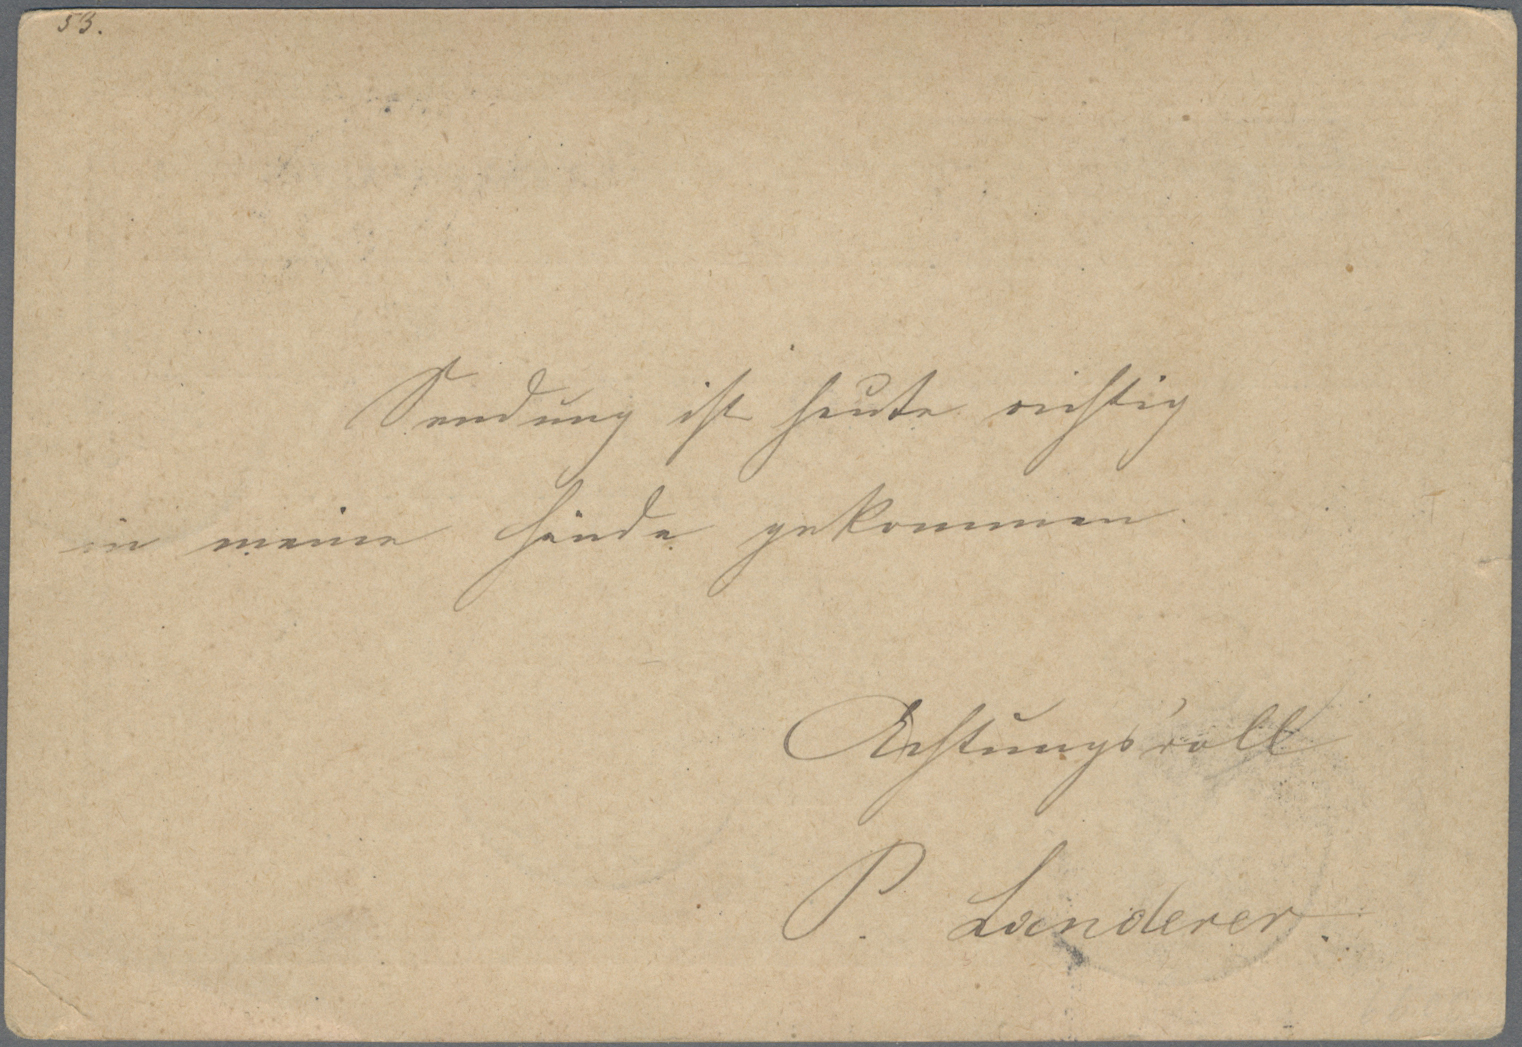 53.
Sendung ist heute richtig
in meine Hände gekommen.
Achtungsvoll
P. Landerer.